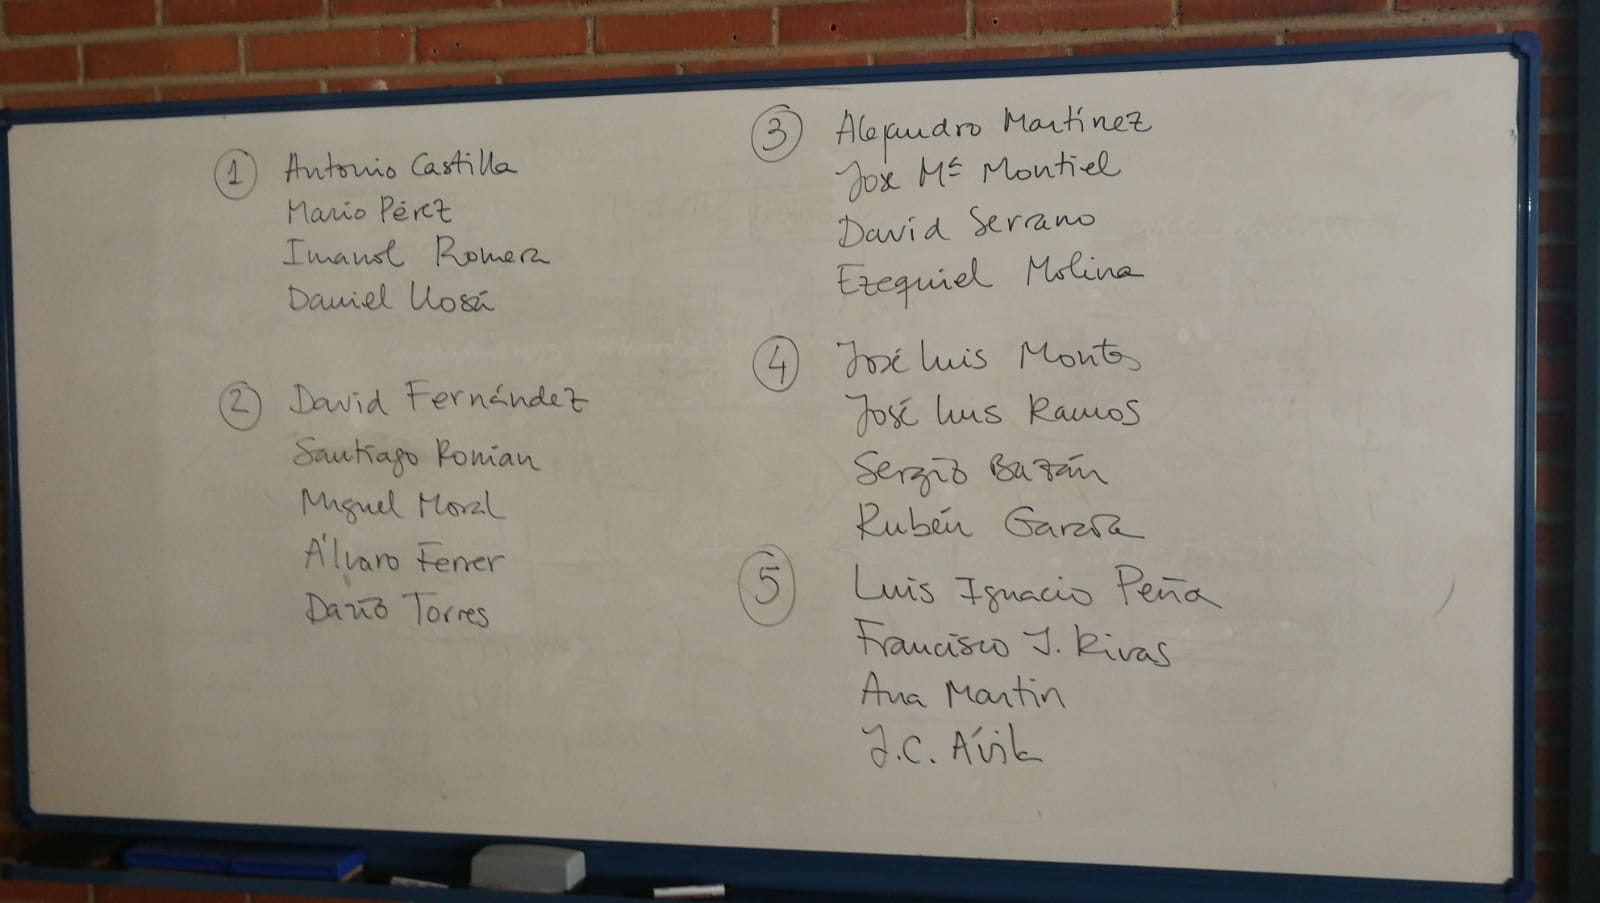 1 Antonio Castilla
Mario Pérez
Imanol Romera
Daniel Llosá
2 David Fernández
Santiago Román
Miguel Moral
Álvaro Ferrer
Darío Torres
3 Alejandro Martínez
Jose Mª Montiel
David Serrano
Ezequiel Molina
4 José Luis Montes
José Luis Ramos
Sergio Bazán
Rubén García
5 Luis Ignacio Peña
Francisco J. Rivas
Ana Martin
J.C. Ávila